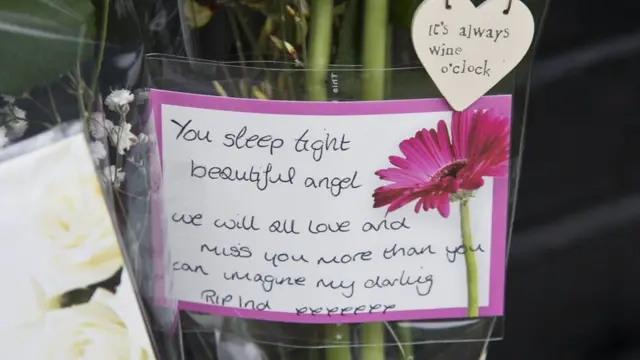 It's always
wine
o'clock
You sleep tight
beautiful angel
we will all love and
miss you more than you
can imagine my darling
RIP Ind xxxxxxx